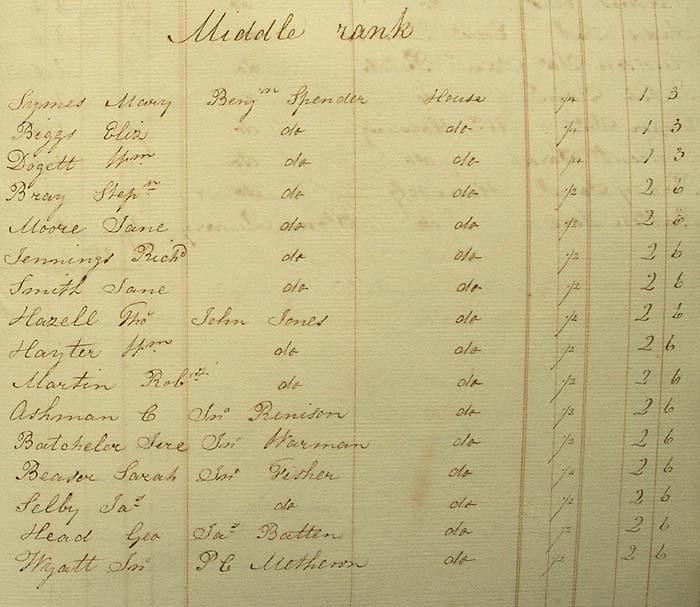 Middle rank
Symes Mary Benjn Spender House 1/2 1 3
Biggs Eliz do do 1/4 1 3
Dogett Wm do do 1/4 1 3
Bray Stepn do do 1/2 2 6
Moore Jane do do 1/2 2 6
Jennings Richd do do 1/2 2 6
Smith Jane do do 1/2 2 6
Hazell Thos John Jones do 1/2 2 6
Hayter Wm do do 1/2 2 6
Martin Robrt do do 1/2 2 6
Ashman C Jno Renison do 1/2 2 6
Batchelor Jere Jno Warman do 1/2 2 6
Beasor Sarah Jno Fisher do 1/2 2 6
Selby Jas do do 1/2 2 6
Head Geo Jas Batten do 1/2 2 6
Wyatt Jno P C Metherin do 1/2 2 6